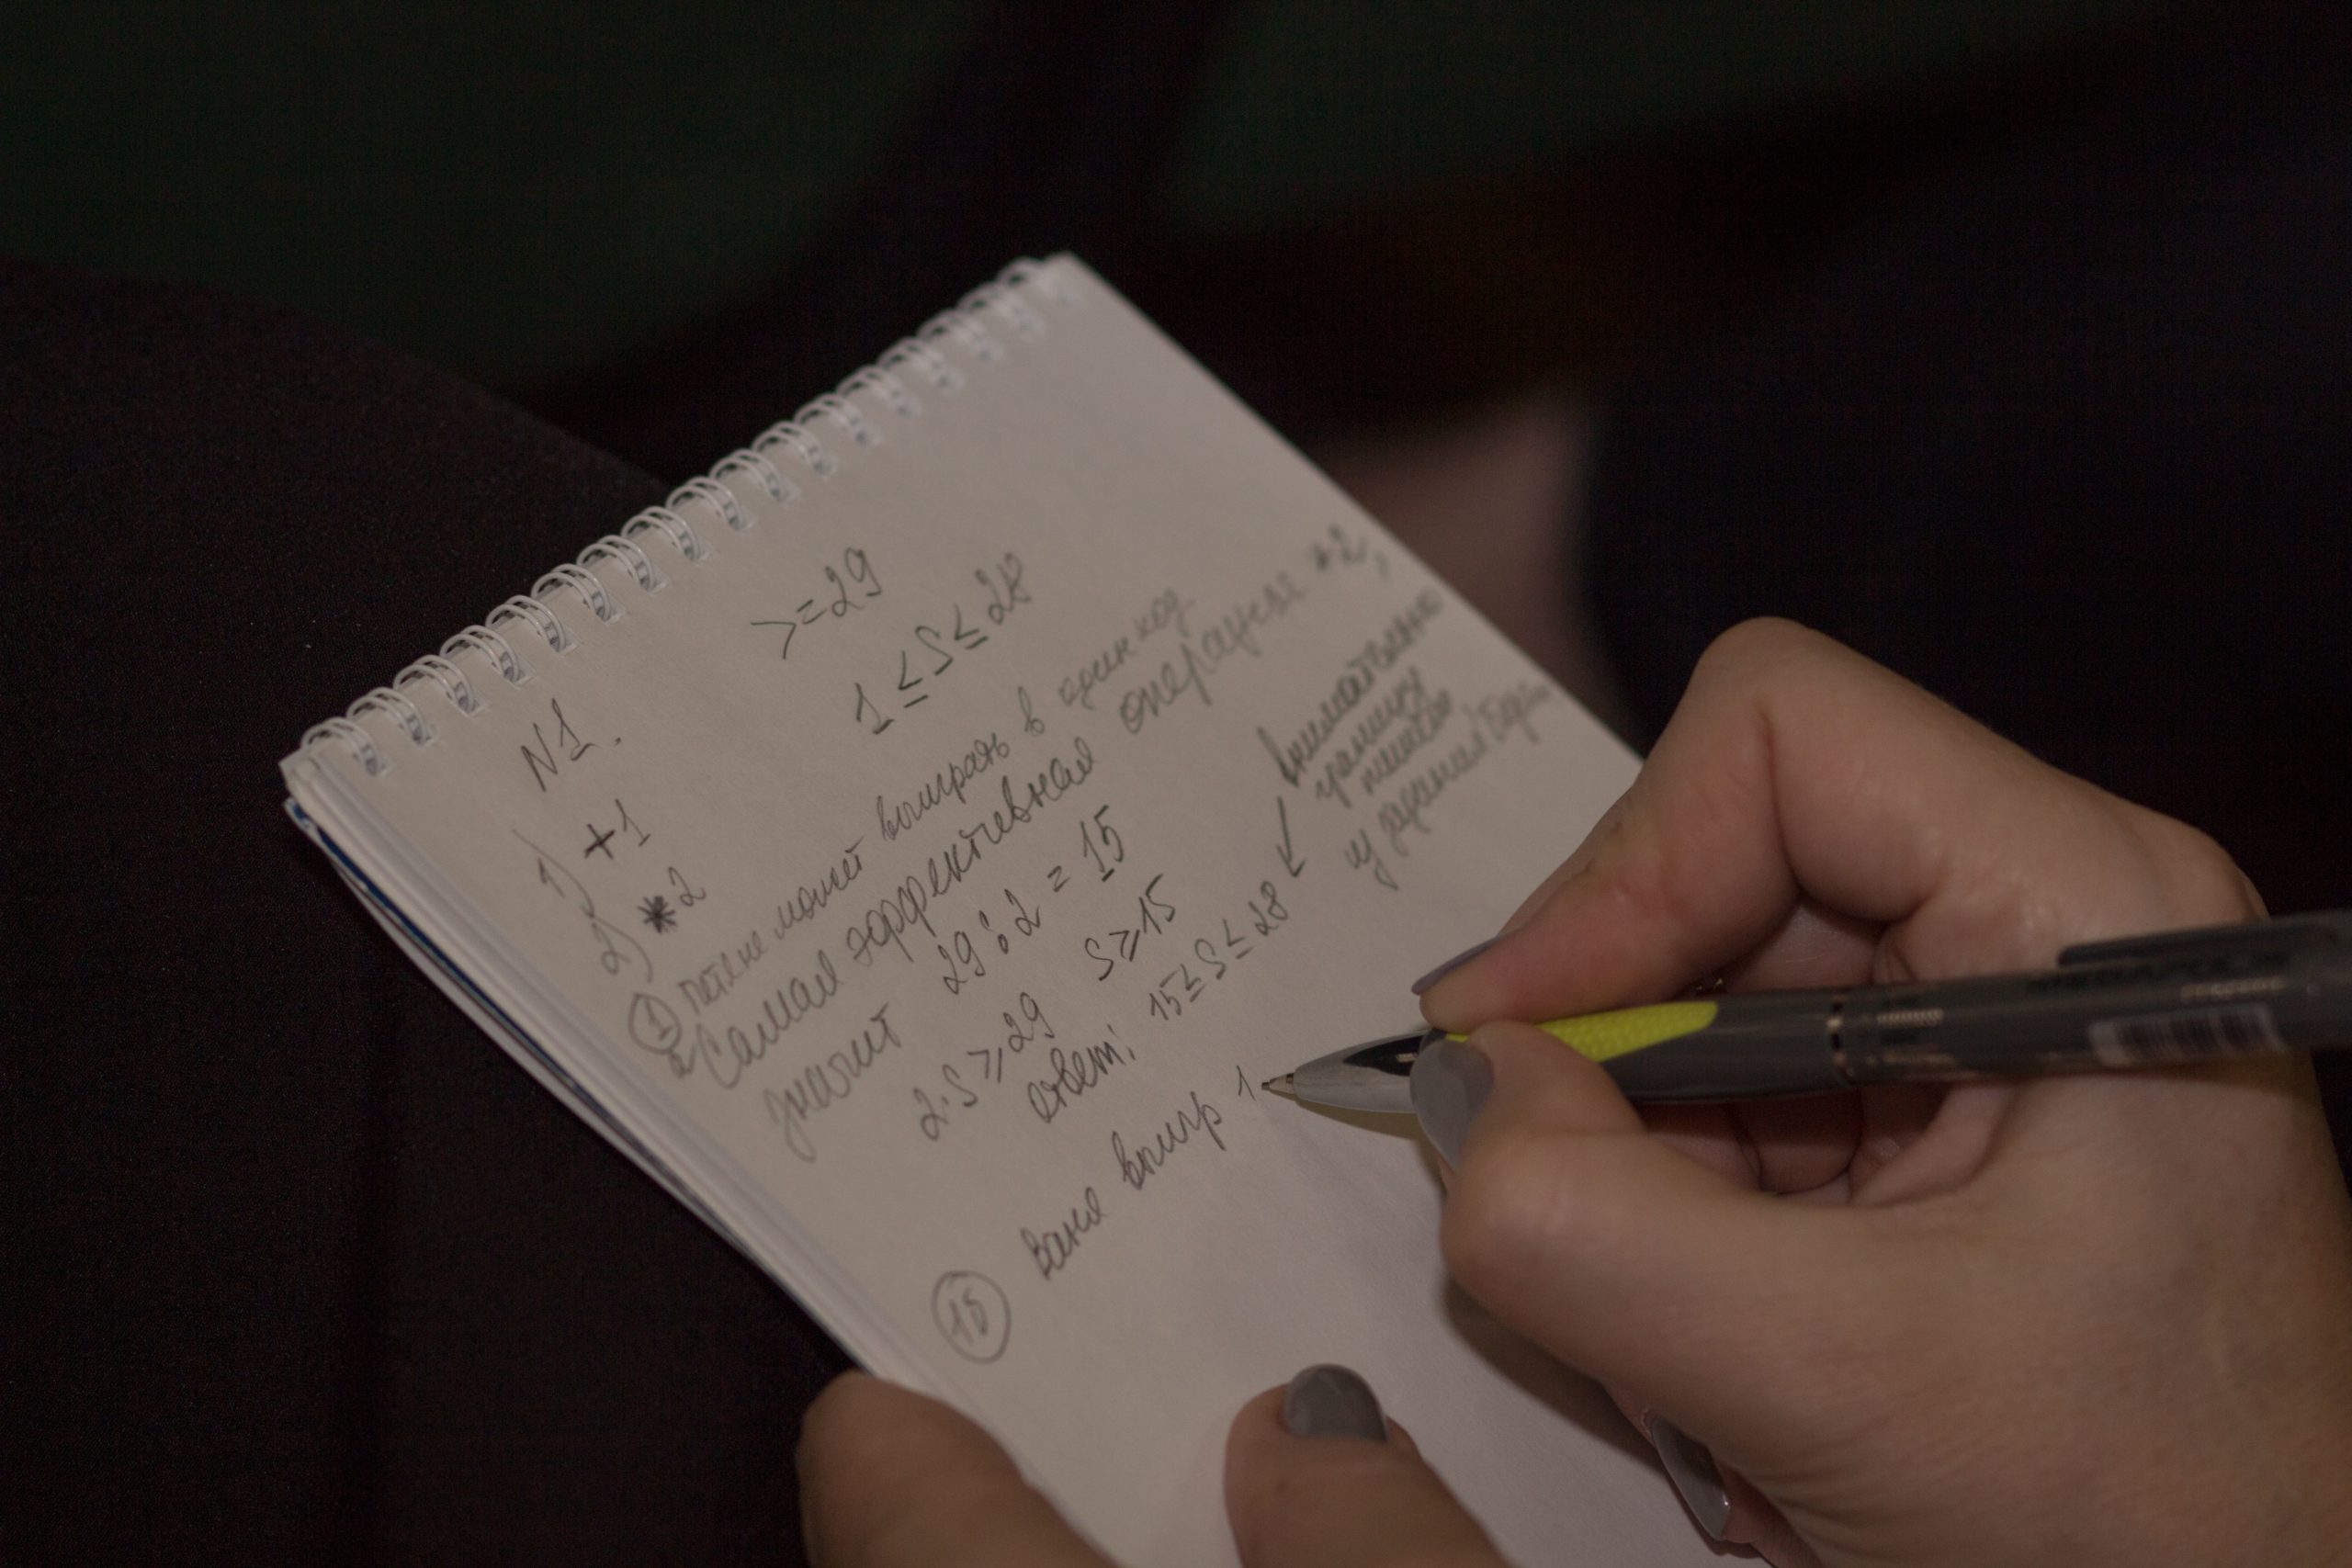 N1.
>=29
1) +1
1≤S≤28
2) *2
① Петя не может выиграть в один ход
а) Самая эффективная операция *2,
значит 29:2=15
2·S≥29 S≥15
ответ: 15≥S≤28
↙ Внимательно
границу
пишем
из задания
1б
Ваня выигр 1